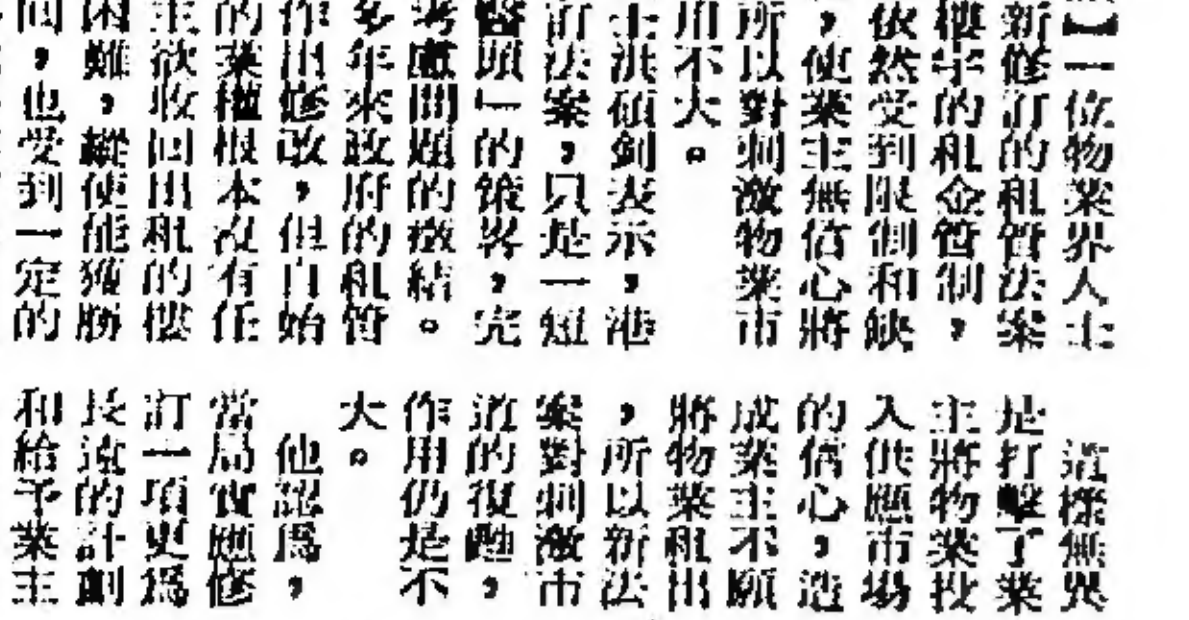 】一位物業界人士
新修訂的租管法案
樓宇的租金管制，
依然受到限制和缺
，使業主無信心將
所以對刺激物業市
用不大。
士洪碩釗表示，港
訂法案，只是一短
醫頭」的策畧，完
考慮問題的癥結。
多年來政府的租管
作出修改，但自始
的業權根本沒有任
主欲收回出租的樓
困難，縱使能獲勝
間，也受到一定的
這樣無異
是打擊了業
主將物業投
入供應市場
的信心，造
成業主不願
將物業租出
，所以新法
案對刺激市
道的復甦，
作用仍是不
大。
他認爲，
當局實應修
訂一項更爲
長遠的計劃
和給予業主